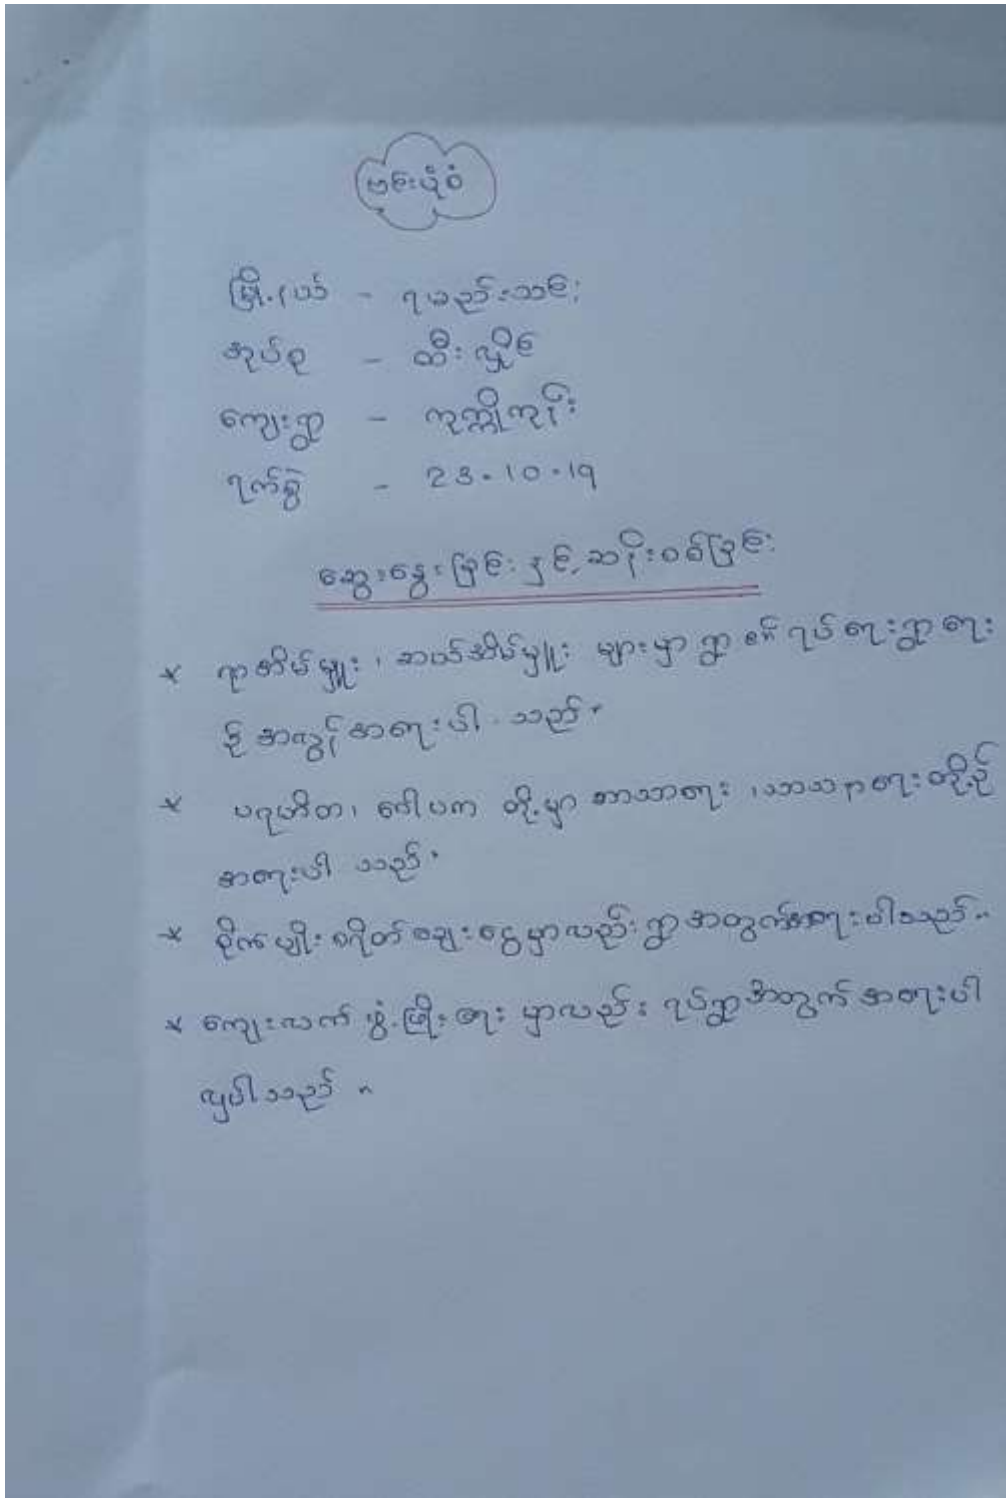 ဗင်းပုံစံ
မြို့နယ် - ရမည်းသင်း
အုပ်စု - ထီးလှိုင်
ကျေးရွာ - ကုက္ကိုကုန်း
ရက်စွဲ - 23.10.19
ဆွေးနွေးခြင်းနှင့်ဆန်းစစ်ခြင်း
* ရာအိမ်မှူး၊ ဆယ်အိမ်မှူး များမှာ ရွာ၏ရပ်ရေးရွာရေး
၌ အလွန်အရေးပါသည်။
* ပရဟိတ၊ ဂေါပက တို့မှာ ဘာသာရေး ၊သာသနာရေးတို့၌
အရေးပါ သည်။
* စိုက်ပျိုးစရိတ်ချေးငွေမှာလည်းရွာအတွက်အရေးပါသည်။
* ကျေးလက် ဖွံ့ဖြိုးရေး မှာလည်း ရပ်ရွာအတွက် အရေးပါ
လှပါသည် ။